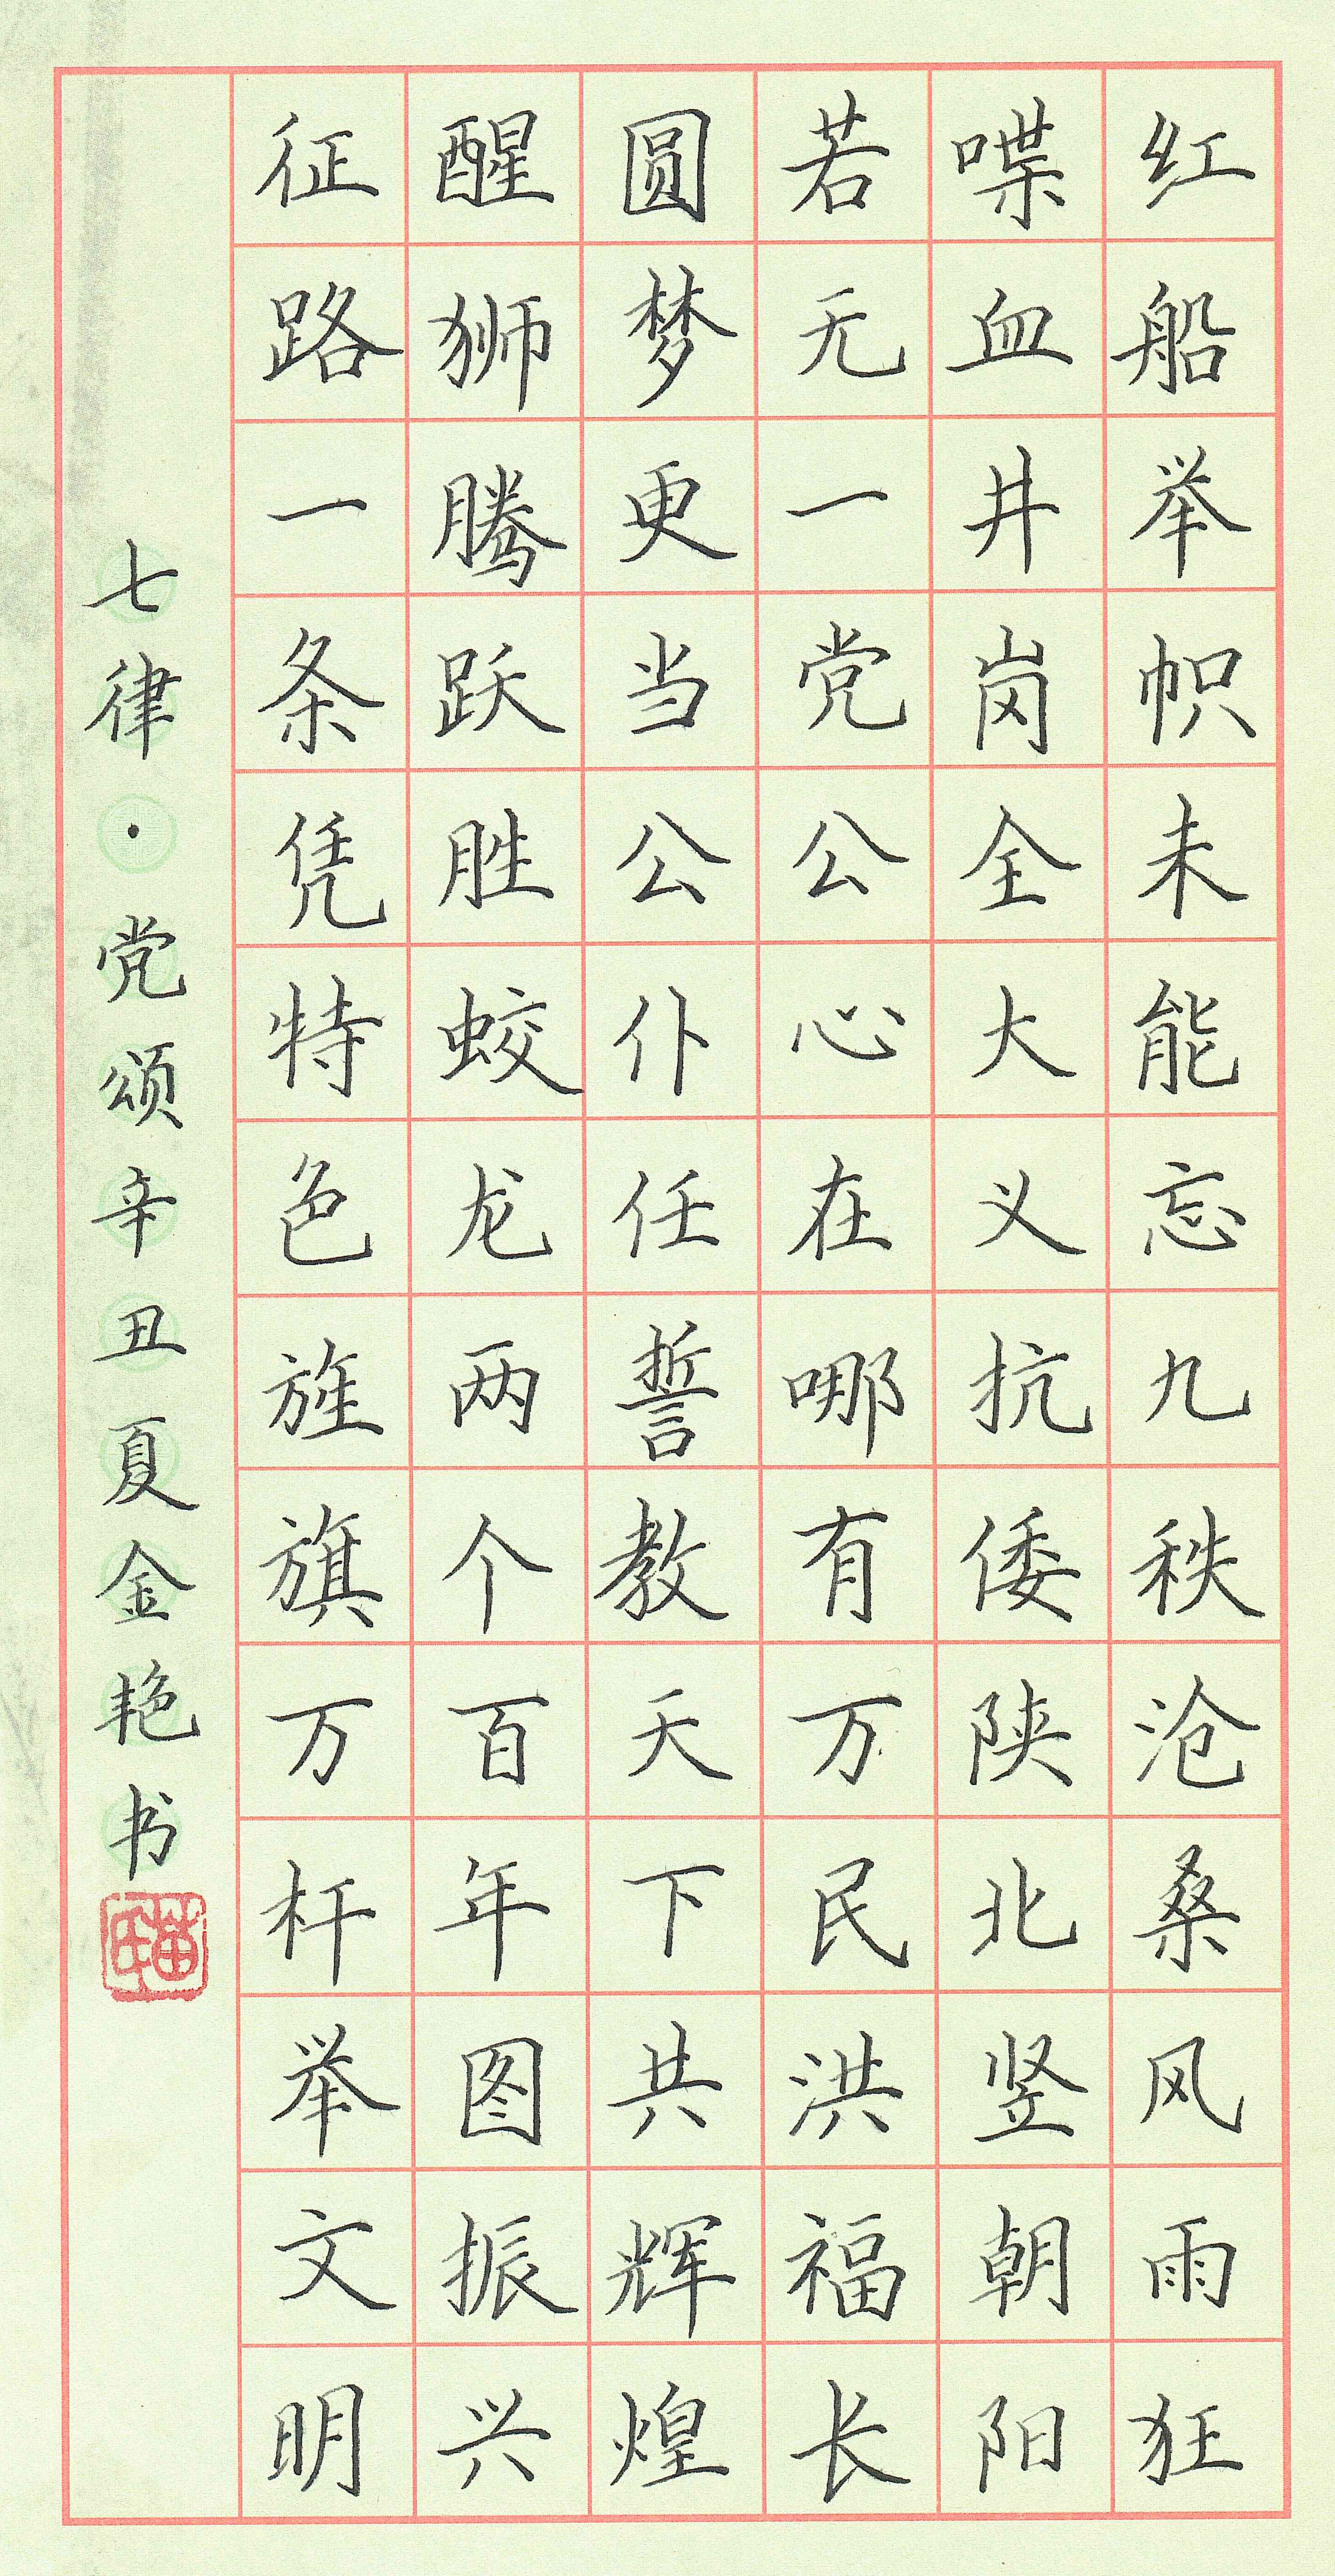 红船举帜未能忘九秩沧桑风雨狂
喋血井岗全大义抗倭陕北竖朝阳
若无一党公心在哪有万民洪福长
圆梦更当公仆任誓教天下共辉煌
醒狮腾跃胜蛟龙两个百年图振兴
征路一条凭特色旌旗万杆举文明
七律·党颂辛丑夏金艳书